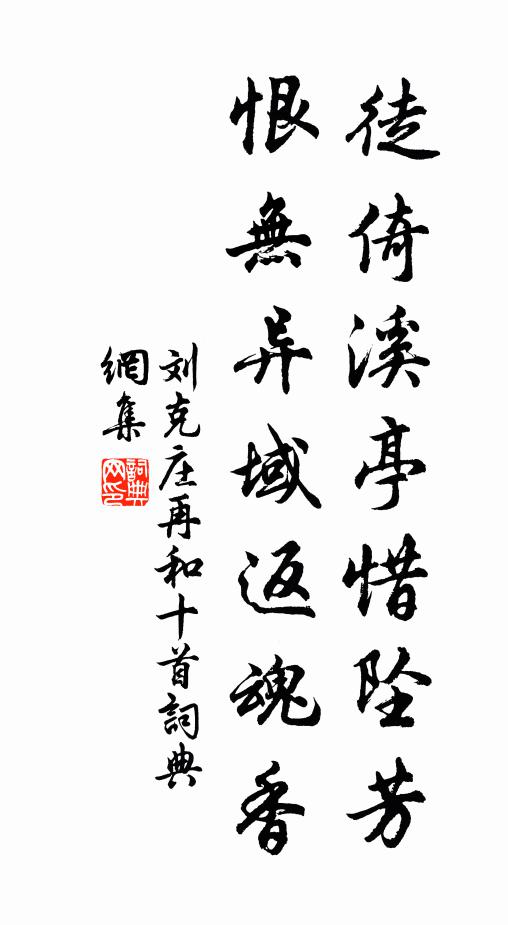 徒倚溪亭惜坠芳
恨無异域返魂香
刘克庄再和十首詞典
網集
詞典
网印